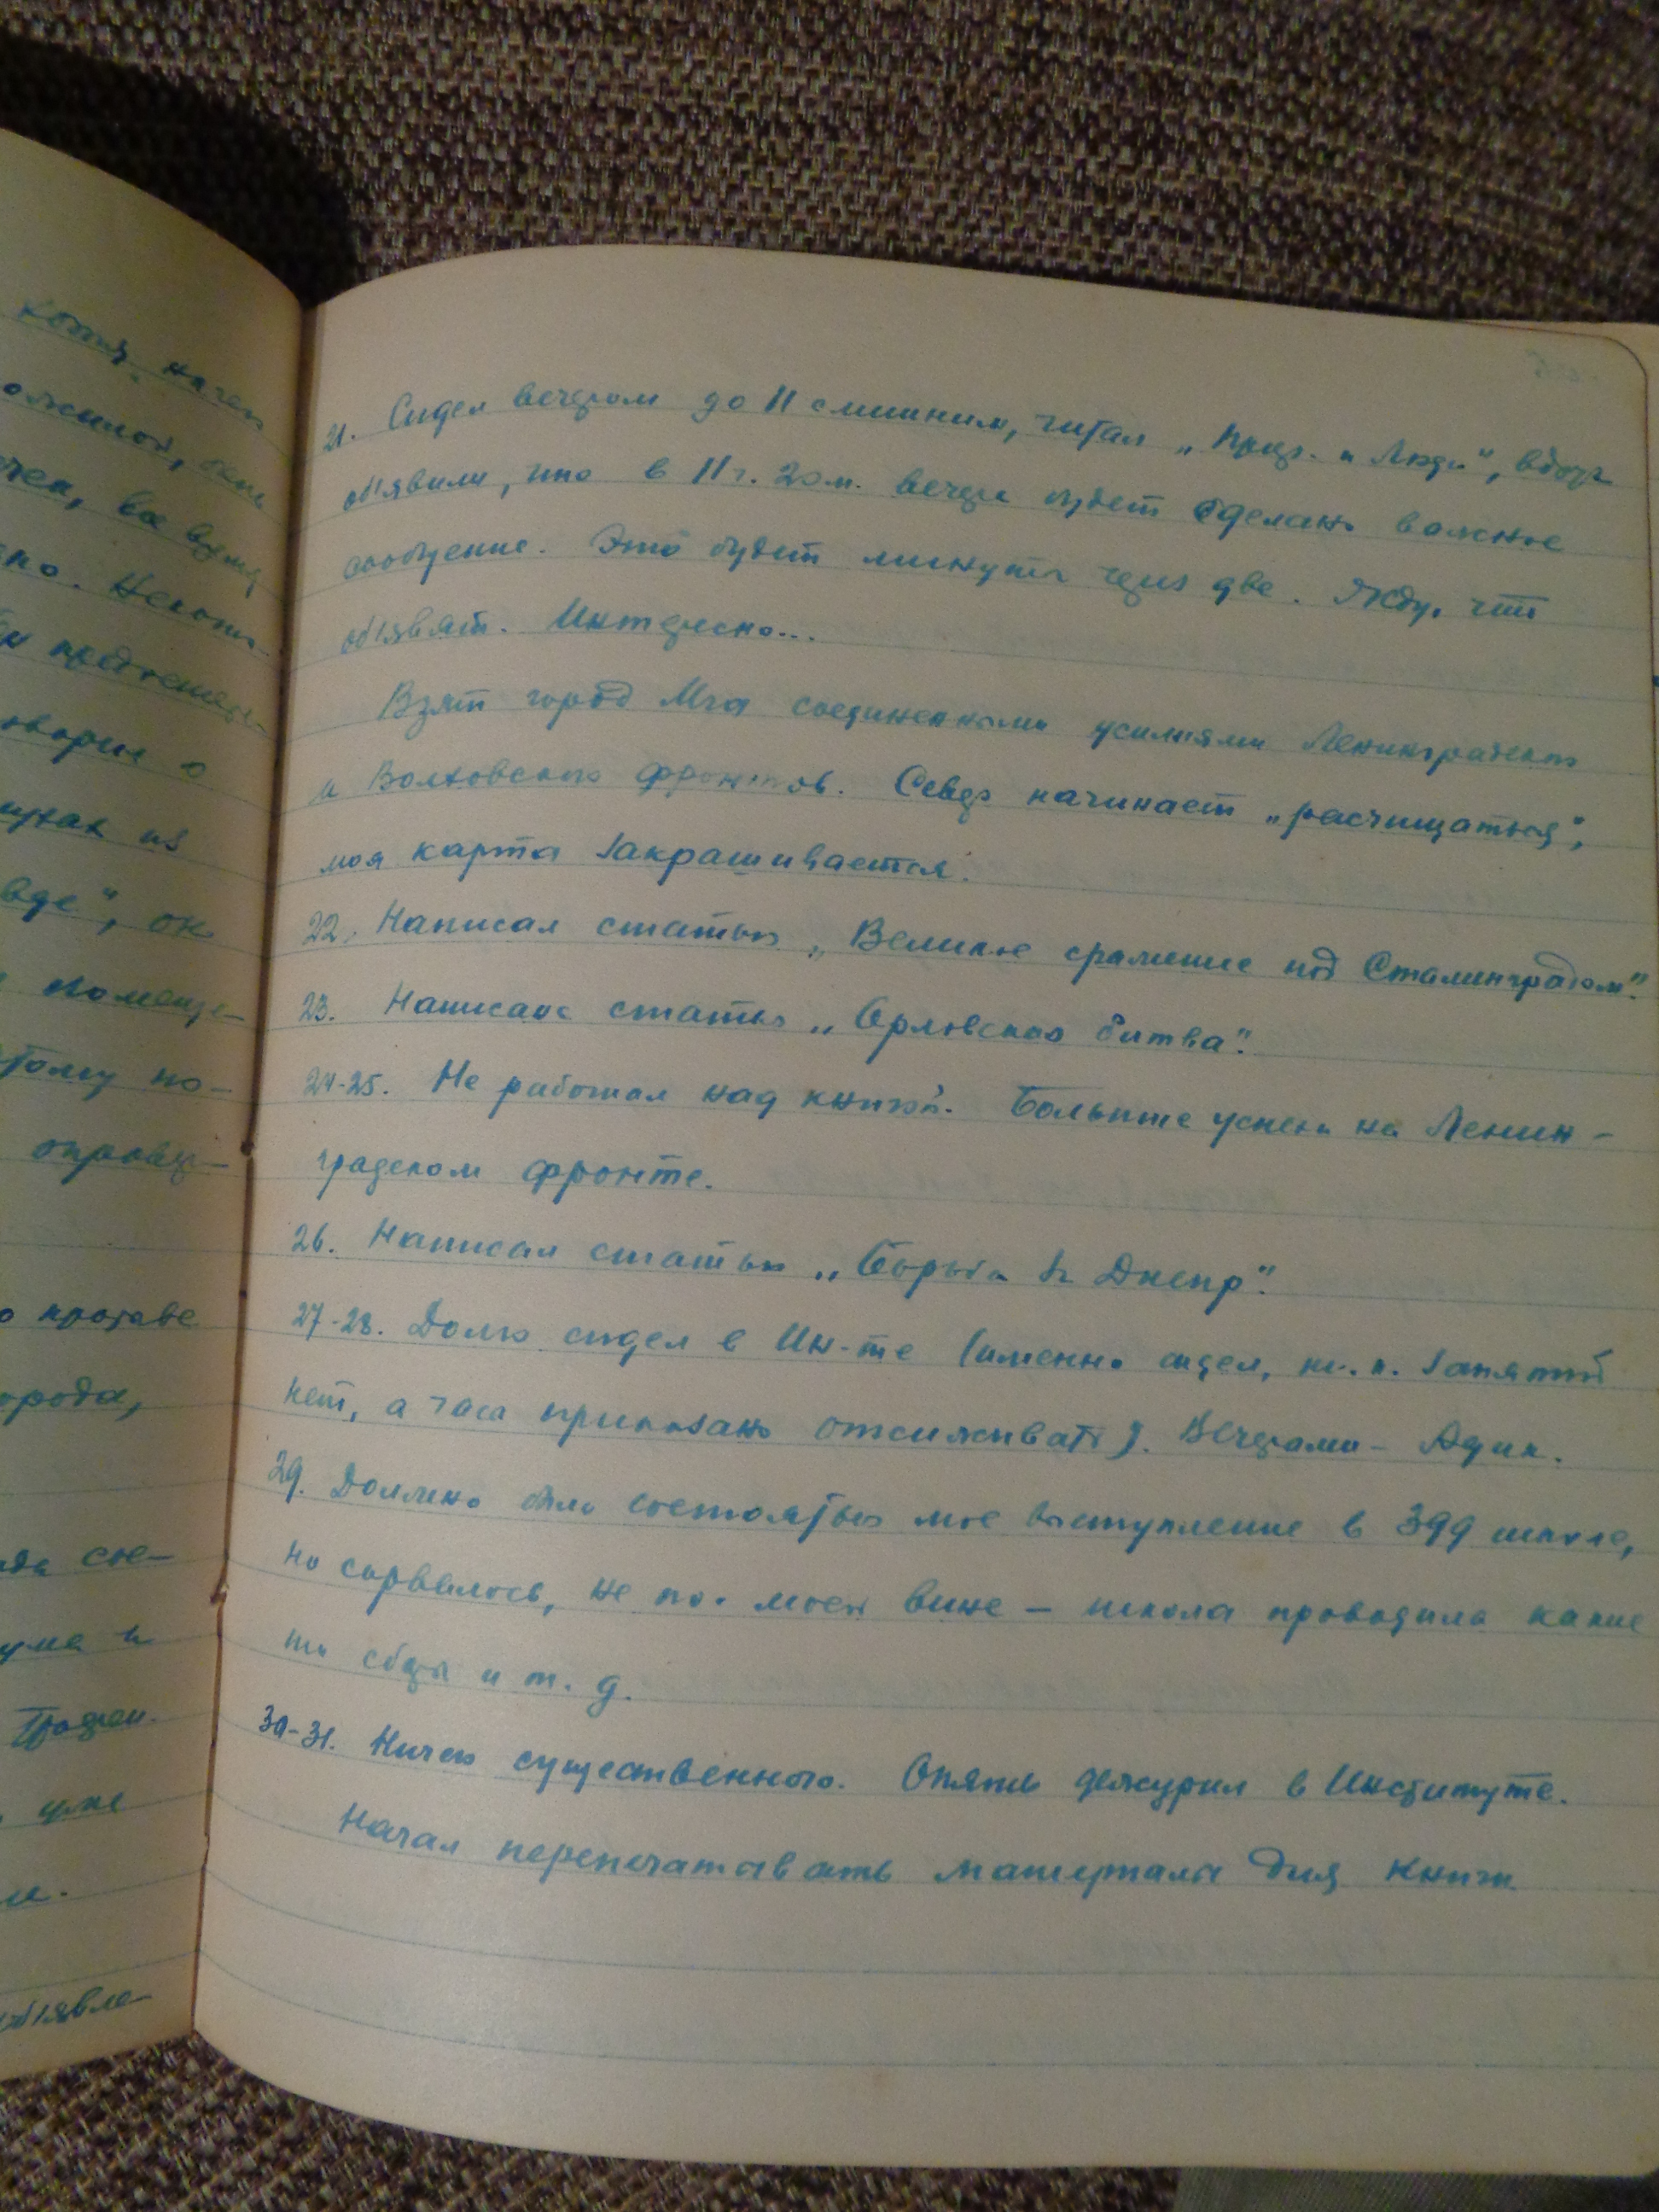 21. Сидел вечером до 11 с лишним, читал „Прир. и Люди“, вдруг
объявили, что в 11 ч. 20 м. вечера будет сделано важное
сообщение. Это будет минуты через две. Жду, что
объявят. Интересно...
Взят город Мга соединенными усилиями Ленинградского
и Волховского фронтов. Север начинает „расчищаться“,
моя карта закрашивается.
22. Написал статью „Великое сражение под Сталинградом“.
23. Написана статья „Орловская битва“.
24-25. Не работал над книгой. Большие успехи на Ленин-
градском фронте.
26. Написал статью „Борьба за Днепр“.
27-28. Долго сидел в Ин-те (именно сидел, т. к. занятий
нет, а часы приказано отсиживать). Вечерами – Адик.
29. Должно было состояться мое выступление в 399 школе,
но сорвалось, не по моей вине – школа проводила какие
то сборы и т. д.
30-31. Ничего существенного. Опять дежурил в Институте.
Начал перепечатывать материалы для книги
хотя
жилой,
все время
но.
говорил о
из
вде“, он
помеще-
тому по-
о кровати
города,
сое-
уже
объявле-